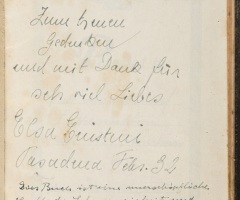 Zum treuen
Gedenken
und mit Dank für
seh viel Liebes
Elsa Einstein
Pasadena Febr. 32
Das Buch ist eine unerschöpfliche